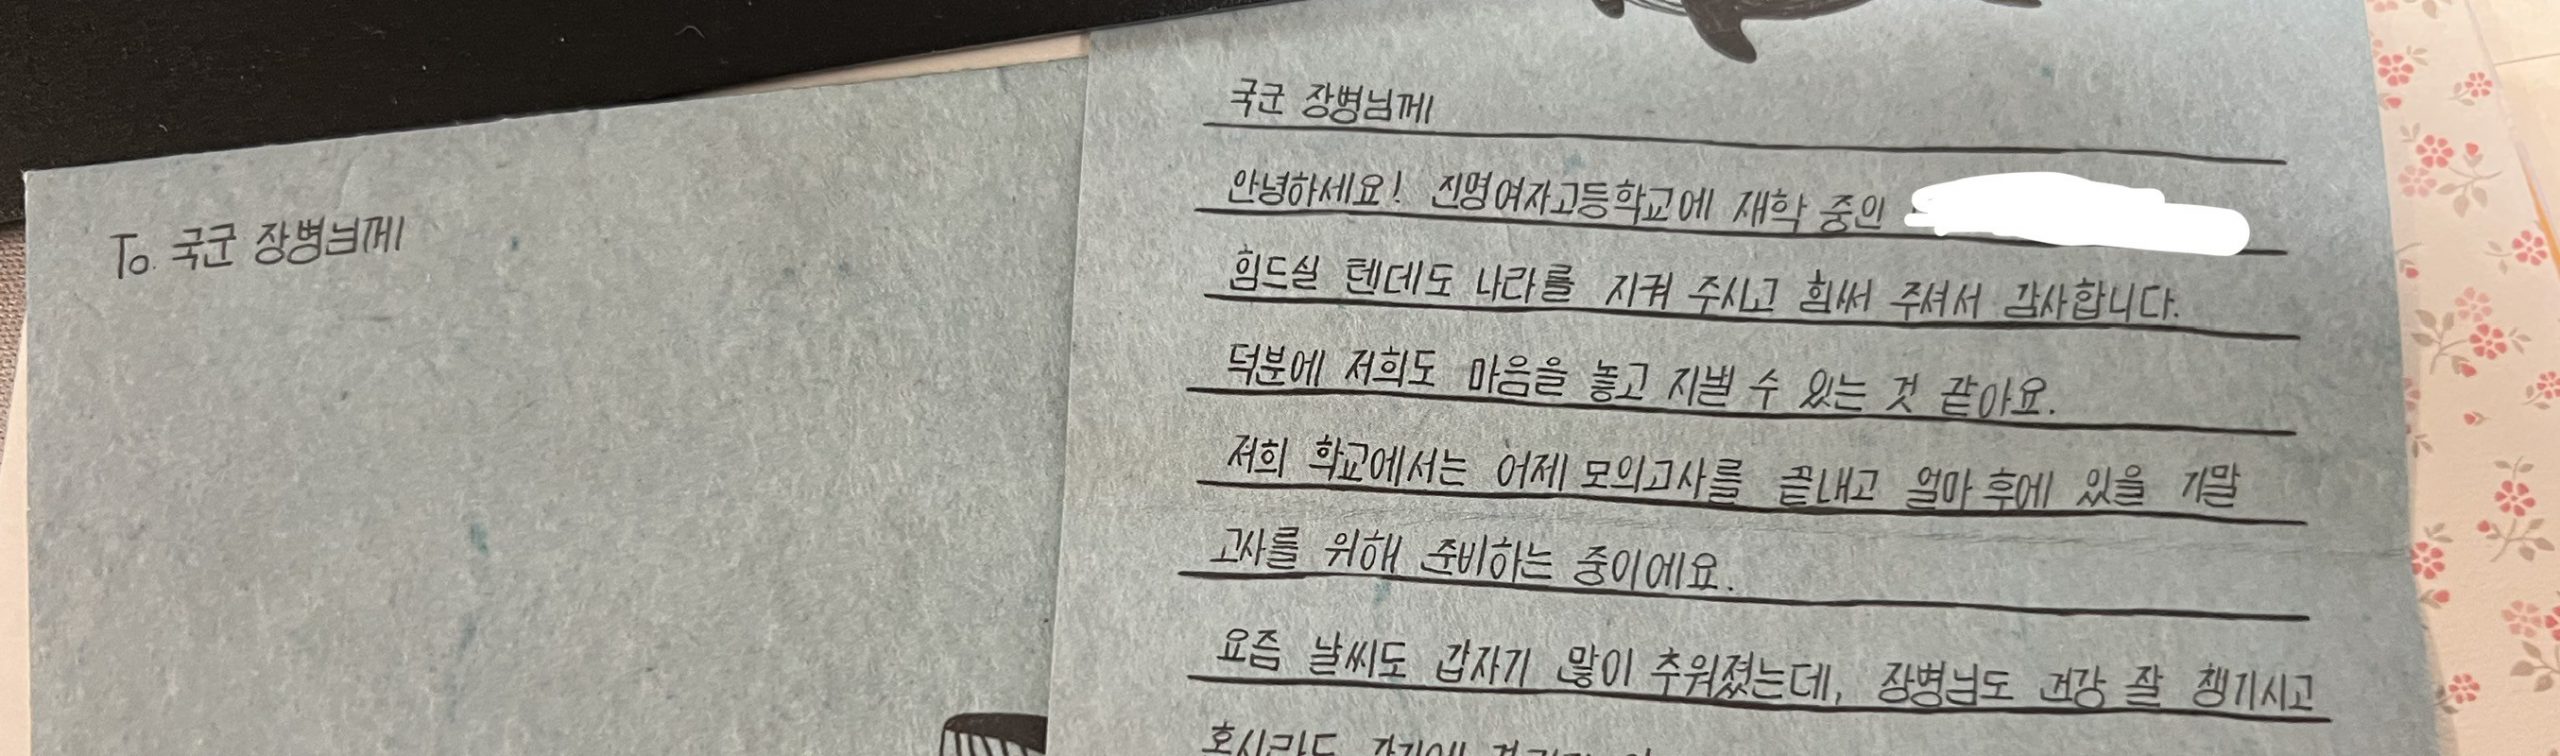 To. 국군 장병님께
국군 장병님께
안녕하세요! 진명여자고등학교에 재학 중인
힘드실 텐데도 나라를 지켜 주시고 힘써 주셔서 감사합니다.
덕분에 저희도 마음을 놓고 지낼 수 있는 것 같아요.
저희 학교에서는 어제 모의고사를 끝내고 얼마 후에 있을 기말
고사를 위해 준비하는 중이에요.
요즘 날씨도 갑자기 많이 추워졌는데, 장병님도 건강 잘 챙기시고
혹시라도 감기에